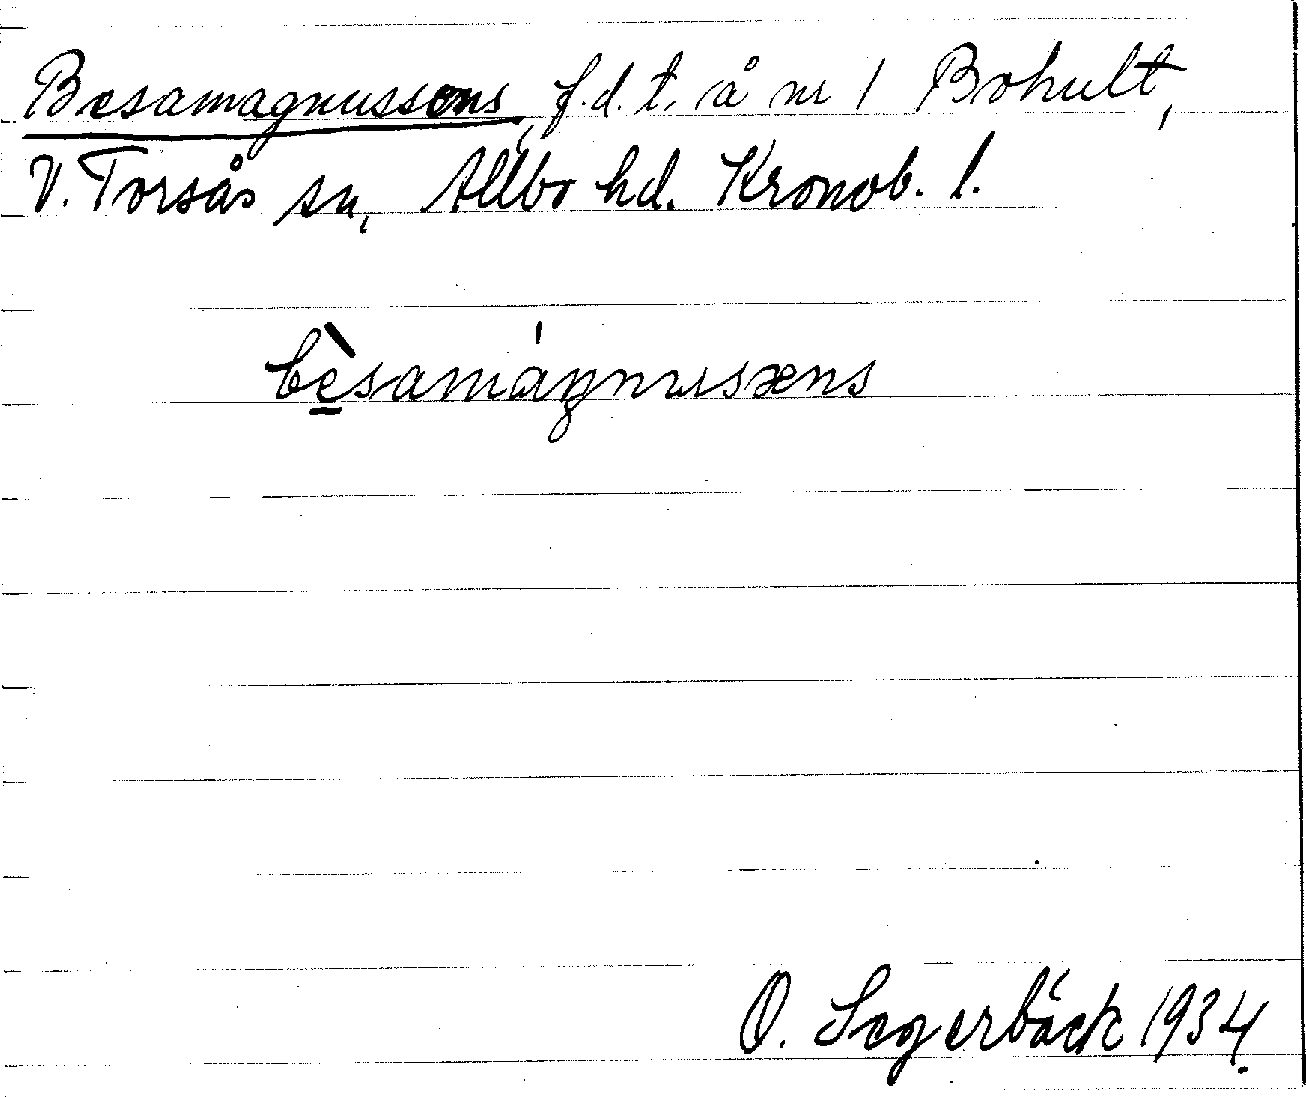 Besamagnussons, f.d. t. å nr 1 Bohult,
V. Torsås sn, Allbo hd. Kronob. l.
bè̱samágnusæns
O. Segerbäck 1934.